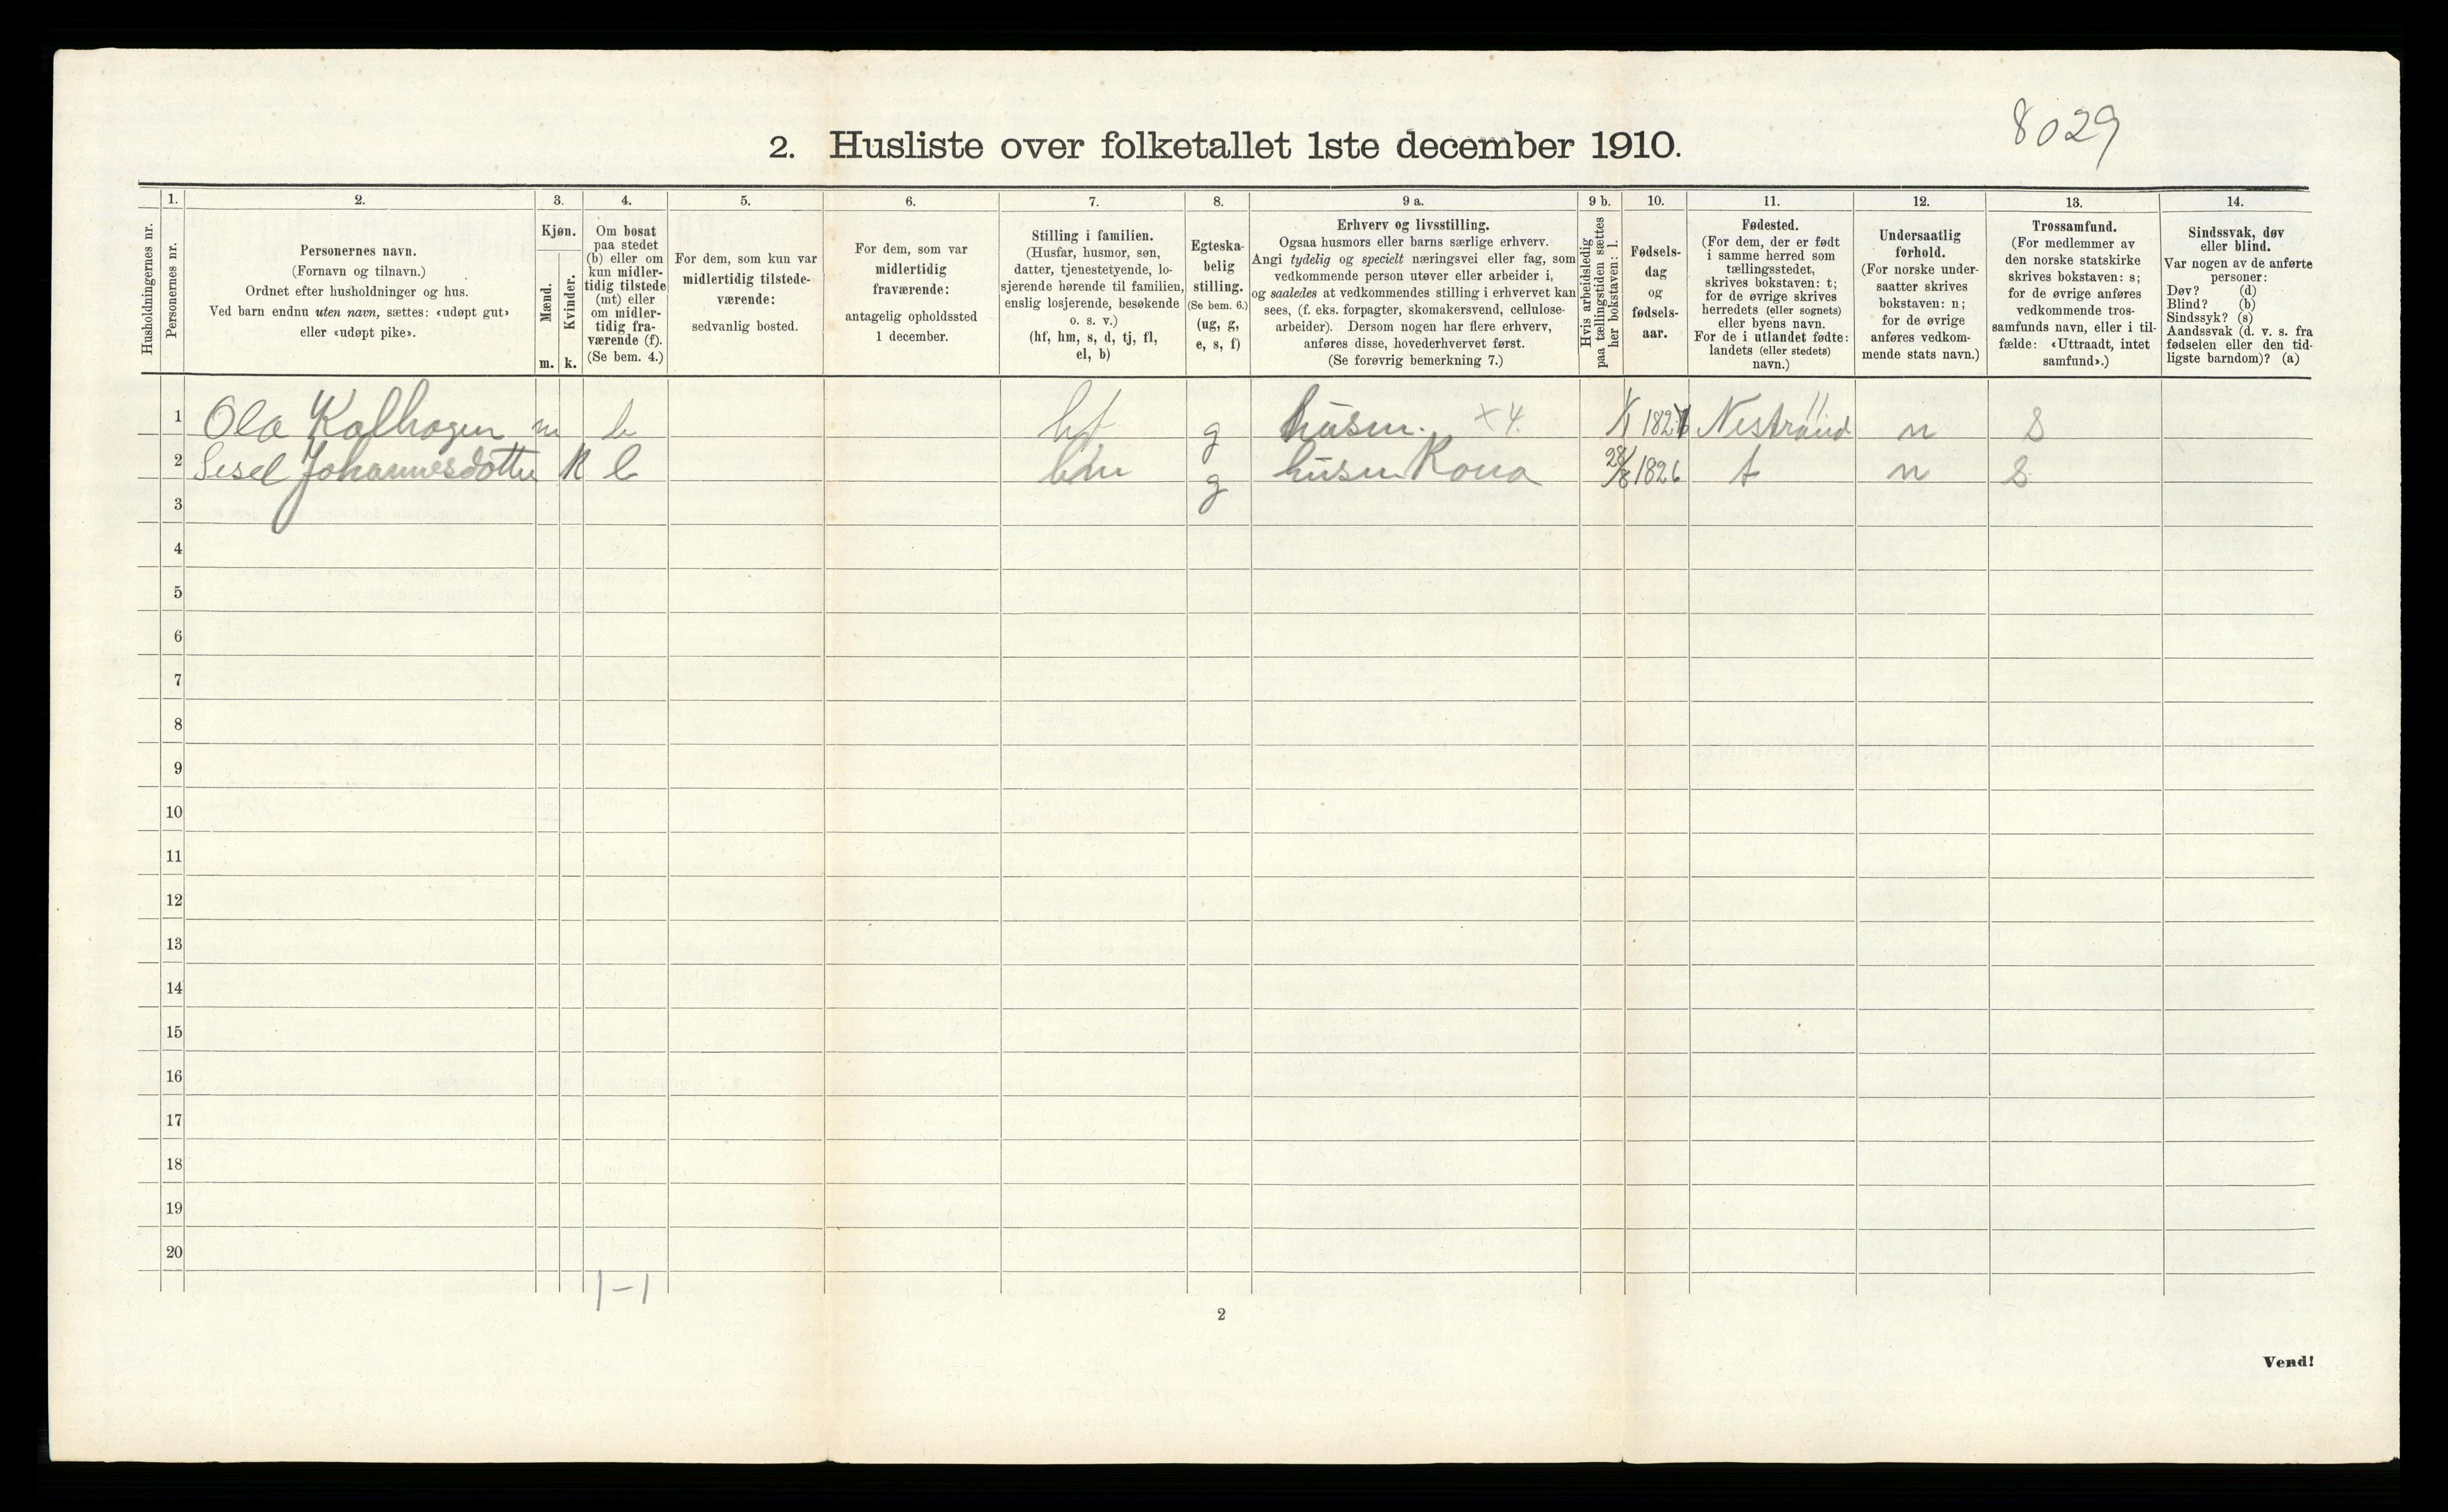 8029
2. Husliste over folketallet 1ste december 1910.
Husholdningernes nr.
1.
Personernes nr.
2.
Personernes navn.
(Fornavn og tilnavn.)
Ordnet efter husholdninger og hus.
Ved barn endnu uten navn, sættes: «udøpt gut»
eller «udøpt pike».
3.
Kjøn.
Mænd.
m.
Kvinder.
k.
4.
Om bosat
paa stedet
(b) eller om
kun midler-
tidig tilstede
(mt) eller
om midler-
tidig fra-
værende (f).
(Se bem. 4.)
5.
For dem, som kun var
midlertidig tilstede-
værende:
sedvanlig bosted.
6.
For dem, som var
midlertidig
fraværende:
antagelig opholdssted
1 december.
7.
Stilling i familien.
(Husfar, husmor, søn,
datter, tjenestetyende, lo-
sjerende hørende til familien,
enslig losjerende, besøkende
o. s. v.)
(hf, hm, s, d, tj, fl,
el, b)
8.
Egteska-
belig
stilling.
(Se bem. 6.)
(ug, g,
e, s, f)
9 a.
Erhverv og livsstilling.
Ogsaa husmors eller barns særlige erhverv.
Angi tydelig og specielt næringsvei eller fag, som
vedkommende person utøver eller arbeider i,
og saaledes at vedkommendes stilling i erhvervet kan
sees, (f. eks. forpagter, skomakersvend, cellulose-
arbeider). Dersom nogen har flere erhverv,
anføres disse, hovederhvervet først.
(Se forøvrig bemerkning 7.)
9 b.
Hvis arbeidsledig
paa tællingstiden sættes
her bokstaven: l.
10.
Fødsels-
dag
og
fødsels-
aar.
11.
Fødested.
(For dem, der er født
i samme herred som
tællingsstedet,
skrives bokstaven: t;
for de øvrige skrives
herredets (eller sognets)
eller byens navn.
For de i utlandet fødte:
landets (eller stedets)
navn.)
12.
Undersaatlig
forhold.
(For norske under-
saatter skrives
bokstaven: n;
for de øvrige
anføres vedkom-
mende stats navn.)
13.
Trossamfund.
(For medlemmer av
den norske statskirke
skrives bokstaven: s;
for de øvrige anføres
vedkommende tros-
samfunds navn, eller i til-
fælde: «Uttraadt, intet
samfund».)
14.
Sindssvak, døv
eller blind.
Var nogen av de anførte
personer:
Døv? (d)
Blind? (b)
Sindssyk? (s)
Aandssvak (d. v. s. fra
fødselen eller den tid-
ligste barndom)? (a)
1 Ola Kalhagen m b hf g husm. x 4. 1/1 Nestrand n S
2 Sesel Johannesdotter K b hm g husm Kona 28/8 1826 t n S
3
4
5
6
7
8
9
10
11
12
13
14
15
16
17
18
19
20
1-1
2
Vend!